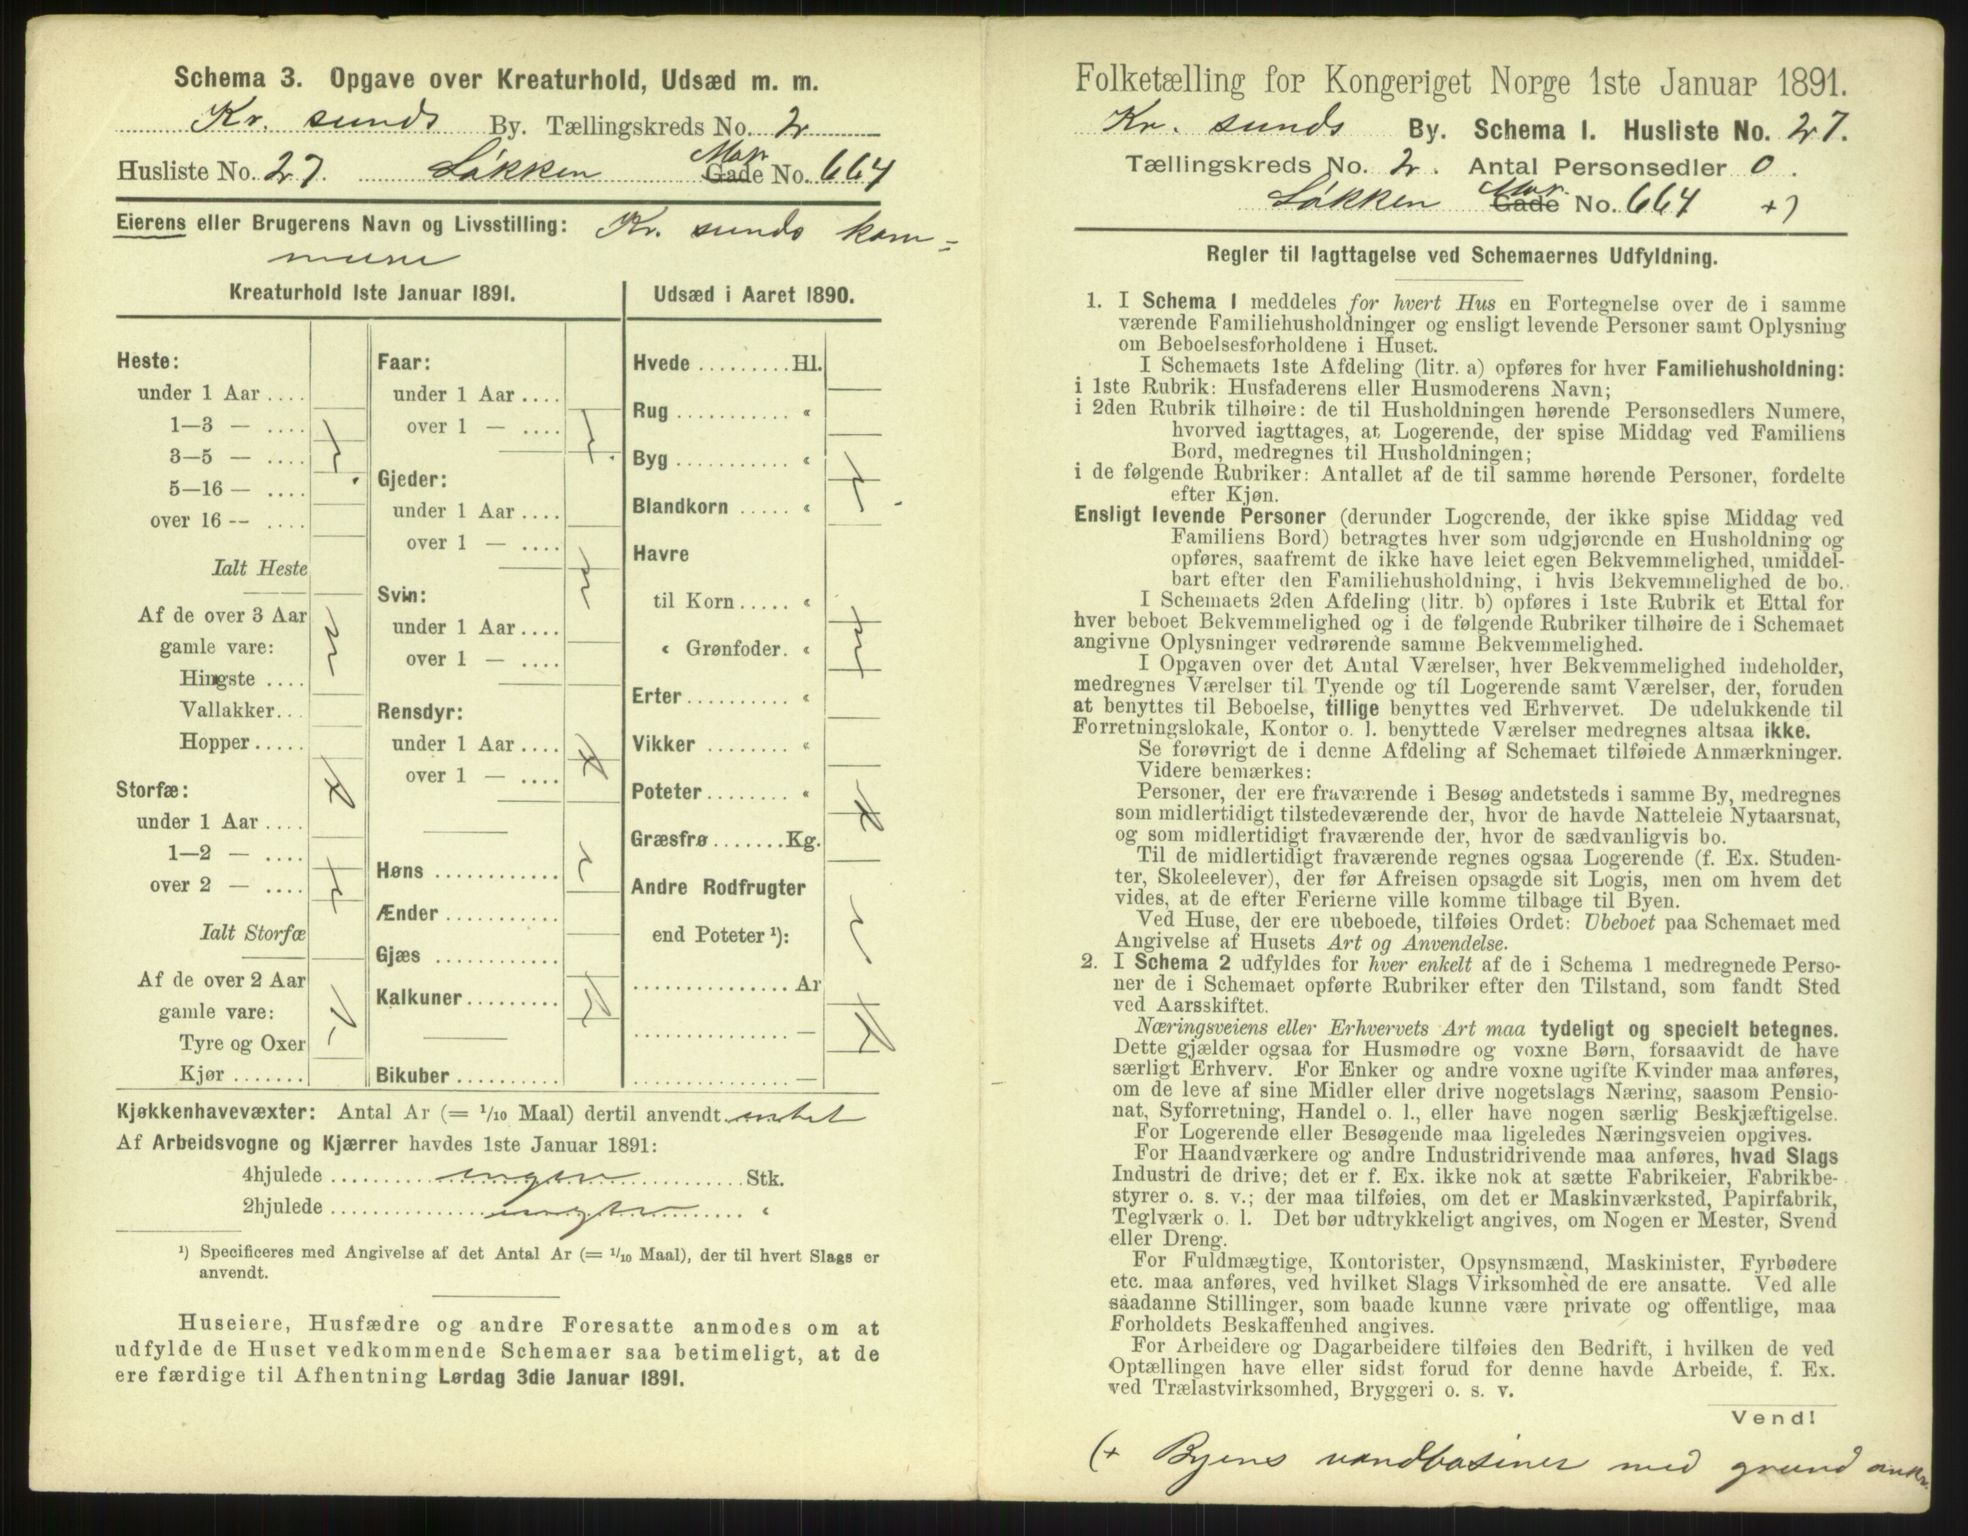 Schema 3. Opgave over Kreaturhold, Udsæd m. m.
Kr. sunds By. Tællingskreds No. 2
Husliste No. 27. Løkken Mar. Gade No. 664
Eierens eller Brugerens Navn og Livsstilling: Kr. sunds kom=
mune
Kreaturhold 1ste Januar 1891.
Heste:
under 1 Aar ....
1—3 — ....
3—5 — ....
5—16 — ....
over 16 -- ....
Ialt Heste
Af de over 3 Aar
gamle vare:
Hingste ....
Vallakker...
Hopper.....
Storfæ:
under 1 Aar ....
1—2 — ....
over 2 — ....
Ialt Storfæ
Af de over 2 Aar
gamle vare:
Tyre og Oxer
Kjør .......
Faar:
under 1 Aar ....
over 1 — ....
Gjeder:
under 1 Aar ....
over 1 — ....
Svin:
under 1 Aar ....
over 1 — ....
Rensdyr:
under 1 Aar ....
over 1 — ....
Høns ............
Ænder ...........
Gjæs ............
Kalkuner.........
Bikuber ..........
Udsæd i Aaret 1890.
Hvede .........Hl.
Rug ........... «
Byg ........... «
Blandkorn ..... «
Havre
til Korn ..... «
« Grønfoder. «
Erter .......... «
Vikker ........ «
Poteter ........ «
Græsfrø .......Kg.
Andre Rodfrugter
end Poteter ¹):
............... Ar
............... —
............... —
Kjøkkenhavevæxter: Antal Ar (= 1/10 Maal) dertil anvendt. intet
Af Arbeidsvogne og Kjærrer havdes 1ste Januar 1891:
4hjulede ingen Stk.
2hjulede ingen «
¹) Specificeres med Angivelse af det Antal Ar (= 1/10 Maal), der til hvert Slags er
anvendt.
Huseiere, Husfædre og andre Foresatte anmodes om at
udfylde de Huset vedkommende Schemaer saa betimeligt, at de
ere færdige til Afhentning Lørdag 3die Januar 1891.
Folketælling for Kongeriget Norge 1ste Januar 1891.
Kr. sunds By. Schema I. Husliste No. 27.
Tællingskreds No. 2. Antal Personsedler 0.
Løkken Mar. Gade No. 664 +)
Regler til Iagttagelse ved Schemaernes Udfyldning.
1. I Schema I meddeles for hvert Hus en Fortegnelse over de i samme
værende Familiehusholdninger og ensligt levende Personer samt Oplysning
om Beboelsesforholdene i Huset.
I Schemaets 1ste Afdeling (litr. a) opføres for hver Familiehusholdning:
i 1ste Rubrik: Husfaderens eller Husmoderens Navn;
i 2den Rubrik tilhøire: de til Husholdningen hørende Personsedlers Numere,
hvorved iagttages, at Logerende, der spise Middag ved Familiens
Bord, medregnes til Husholdningen;
i de følgende Rubriker: Antallet af de til samme hørende Personer, fordelte
efter Kjøn.
Ensligt levende Personer (derunder Logerende, der ikke spise Middag ved
Familiens Bord) betragtes hver som udgjørende en Husholdning og
opføres, saafremt de ikke have leiet egen Bekvemmelighed, umiddel-
bart efter den Familiehusholdning, i hvis Bekvemmelighed de bo.
I Schemaets 2den Afdeling (litr. b) opføres i 1ste Rubrik et Ettal for
hver beboet Bekvemmelighed og i de følgende Rubriker tilhøire de i Schemaet
angivne Oplysninger vedrørende samme Bekvemmelighed.
I Opgaven over det Antal Værelser, hver Bekvemmelighed indeholder,
medregnes Værelser til Tyende og til Logerende samt Værelser, der, foruden
at benyttes til Beboelse, tillige benyttes ved Erhvervet. De udelukkende til
Forretningslokale, Kontor o. l. benyttede Værelser medregnes altsaa ikke.
Se forøvrigt de i denne Afdeling af Schemaet tilføiede Anmærkninger.
Videre bemærkes:
Personer, der ere fraværende i Besøg andetsteds i samme By, medregnes
som midlertidigt tilstedeværende der, hvor de havde Natteleie Nytaarsnat,
og som midlertidigt fraværende der, hvor de sædvanligvis bo.
Til de midlertidigt fraværende regnes ogsaa Logerende (f. Ex. Studen-
ter, Skoleelever), der før Afreisen opsagde sit Logis, men om hvem det
vides, at de efter Ferierne ville komme tilbage til Byen.
Ved Huse, der ere ubeboede, tilføies Ordet: Ubeboet paa Schemaet med
Angivelse af Husets Art og Anvendelse.
2. I Schema 2 udfyldes for hver enkelt af de i Schema 1 medregnede Perso-
ner de i Schemaet opførte Rubriker efter den Tilstand, som fandt Sted
ved Aarsskiftet.
Næringsveiens eller Erhvervets Art maa tydeligt og specielt betegnes.
Dette gjælder ogsaa for Husmødre og voxne Børn, forsaavidt de have
særligt Erhverv. For Enker og andre voxne ugifte Kvinder maa anføres,
om de leve af sine Midler eller drive nogetslags Næring, saasom Pensio-
nat, Syforretning, Handel o. l., eller have nogen særlig Beskjæftigelse.
For Logerende eller Besøgende maa ligeledes Næringsveien opgives.
For Haandværkere og andre Industridrivende maa anføres, hvad Slags
Industri de drive; det er f. Ex. ikke nok at sætte Fabrikeier, Fabrikbe-
styrer o. s. v.; der maa tilføies, om det er Maskinværksted, Papirfabrik,
Teglværk o. l. Det bør udtrykkeligt angives, om Nogen er Mester, Svend
eller Dreng.
For Fuldmægtige, Kontorister, Opsynsmænd, Maskinister, Fyrbødere
etc. maa anføres, ved hvilket Slags Virksomhed de ere ansatte. Ved alle
saadanne Stillinger, som baade kunne være private og offentlige, maa
Forholdets Beskaffenhed angives.
For Arbeidere og Dagarbeidere tilføies den Bedrift, i hvilken de ved
Optællingen have eller sidst forud for denne havde Arbeide, f. Ex.
ved Trælastvirksomhed, Bryggeri o. s. v.
Vend!
(+ Byens vandbasiner med grund